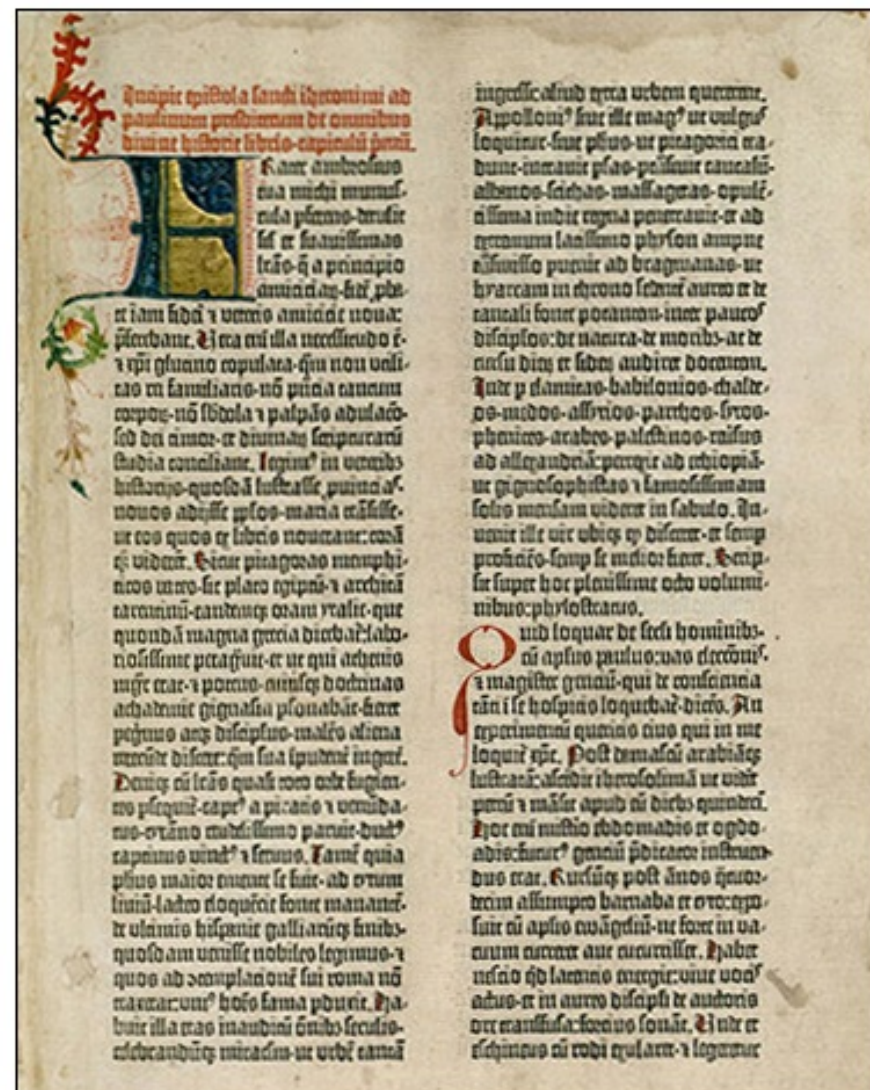 Incipit epistola sancti iheronimi ad
paulinum presbiterum de omnibus
divine historie libris capitulū pͥmū.
Frater ambrosius
tua michi munus-
cula pferens detulit
sil et suavissimas
lrās q̄ a principio
amicicia⁊ fidē pba-
te iam fidei ⁊ veteris amicicie nova:
pferebant. Vera eni illa necessitudo ē·
⁊ xpi glutino copulata·qm non utili-
tas rei familiaris·nō pñcia tantum
corpoꝝ·nō sbdola ⁊ palpās adulacō·
sed dei timor·et divinaꝝ scripturarū
studia conciliant. Legimꝰ in veteribꝫ
historijs·quosdā lustrasse puincias·
novos adijsse pplos·maria trāsisse·
ut eos quos ex libris noverant: corā
qꝫ viderēt. Sicut pitagoras memphi-
ticos vates·sic plato egiptū·⁊ architā
tarentinū·eandemqꝫ oram ytalie·que
quondā magna grecia dicebaē: labo-
riosissime peragvit·et ut qui athenis
mgr erat·⁊ potens·cuiusqꝫ doctrinas
achademie gignasia psonabāt·fieret
pegrinus atqꝫ discipulus·malēs aliena
verecūde discere: qm sua īpudent ingere.
Deniqꝫ cū lrās quasi toto orbe fugien-
tes psequiē·captꝰ a piratis ⁊ venūda-
tus·tirāno crudelissimo paruit·ductꝰ
captivus vinctꝰ ⁊ servus. Tamē quia
phus maior emente se fuit·ad tytum
liviū·lacteo eloquēcie fonte manantē·
de ultimis hispanie galliarūqꝫ finibꝫ·
quosdam venisse nobiles legimus·⁊
quos ad ꝯtemplacionē sui roma nō
traxerat: uniꝰ hoīs fama pduxit. Ha-
buit illa etas inauditū ōnibꝫ seculis·
celebrandūqꝫ miraclm·ut urbē tantā
ingressi: aliud extra urbem quererent.
Appolloniꝰ sive ille magꝰ ut vulgus
loquitur·sive phus ut pitagorici tra-
dunt·intravit psas·ptransivit caucasū·
albanos·scithas·massagetas·opulē-
tissima indie regna penetravit·et ad
extremum latissimo physon ampne
trāsmisso puenit ad bragmanas·ut
hyarcam in throno sedentē aureo et de
tantali fonte potantem·inter paucos
discipulos: de natura·de moribꝫ·ac de
cursu dieꝝ et sideꝝ audiret docentem.
Inde p elamitas·babilonios·chalde-
os·medos·assyrios·parthos·syros·
phenices·arabes·palestinos·reversus
ad allexandriā: perrexit ad ethiopiā·
ut gignosophistas ⁊ famosissimam
solis mensam videret in sabulo. In-
venit ille vir ubiqꝫ qꝫ disceret·et semp
proficiēs·semp se melior fieret. Scrip-
sit super hoc plenissime octo volumi-
nibus: phylostratus.
Quid loquar de seculi hominibꝫ·
cū aplus paulus: vas electionis·
⁊ magister genciū·qui de consciencia
tāti ī se hospitis loquebaē·dicēs. An
experimentū queritis eius qui in me
loquiē xpc. Post damascū arabiāqꝫ
lustratā: ascēdit iherosolimā ut vidēt
petrū ⁊ māsit apud eū diebꝫ quindeci.
Hoc eni misterio ebdomadis et ogdo-
adis: futurꝰ genciū pdicator instruen-
dus erat. Rursūqꝫ post ānos q̄tuor-
decim assumpto barnaba et tyto: expo-
suit cū aplis ewāgeliū·ne forte in va-
cuum curreret aut cucurrisset. Habet
nescio qd latentis energie: vive vocis
actus·et in aures discipli de auctoris
ore transfusa: forcius sonat. Unde et
eschineus cū rodi exularet·⁊ legeretur